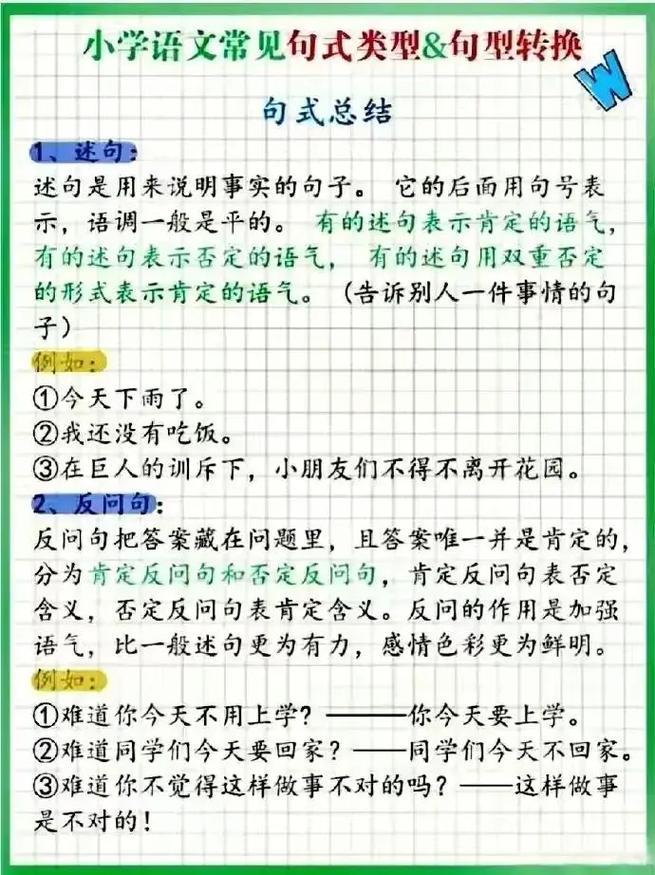 小学语文常见句式类型&句型转换
W
句式总结
1、述句：
述句是用来说明事实的句子。 它的后面用句号表
示，语调一般是平的。 有的述句表示肯定的语气，
有的述句表示否定的语气， 有的述句用双重否定
的形式表示肯定的语气。（告诉别人一件事情的句
子）
例如：
①今天下雨了。
②我还没有吃饭。
③在巨人的训斥下，小朋友们不得不离开花园。
2、反问句：
反问句把答案藏在问题里，且答案唯一并是肯定的，
分为肯定反问句和否定反问句，肯定反问句表否定
含义，否定反问句表肯定含义。反问的作用是加强
语气，比一般述句更为有力，感情色彩更为鲜明。
例如：
①难道你今天不用上学？———你今天要上学。
②难道同学们今天要回家？——同学们今天不回家。
③难道你不觉得这样做事不对的吗？——这样做事
是不对的！